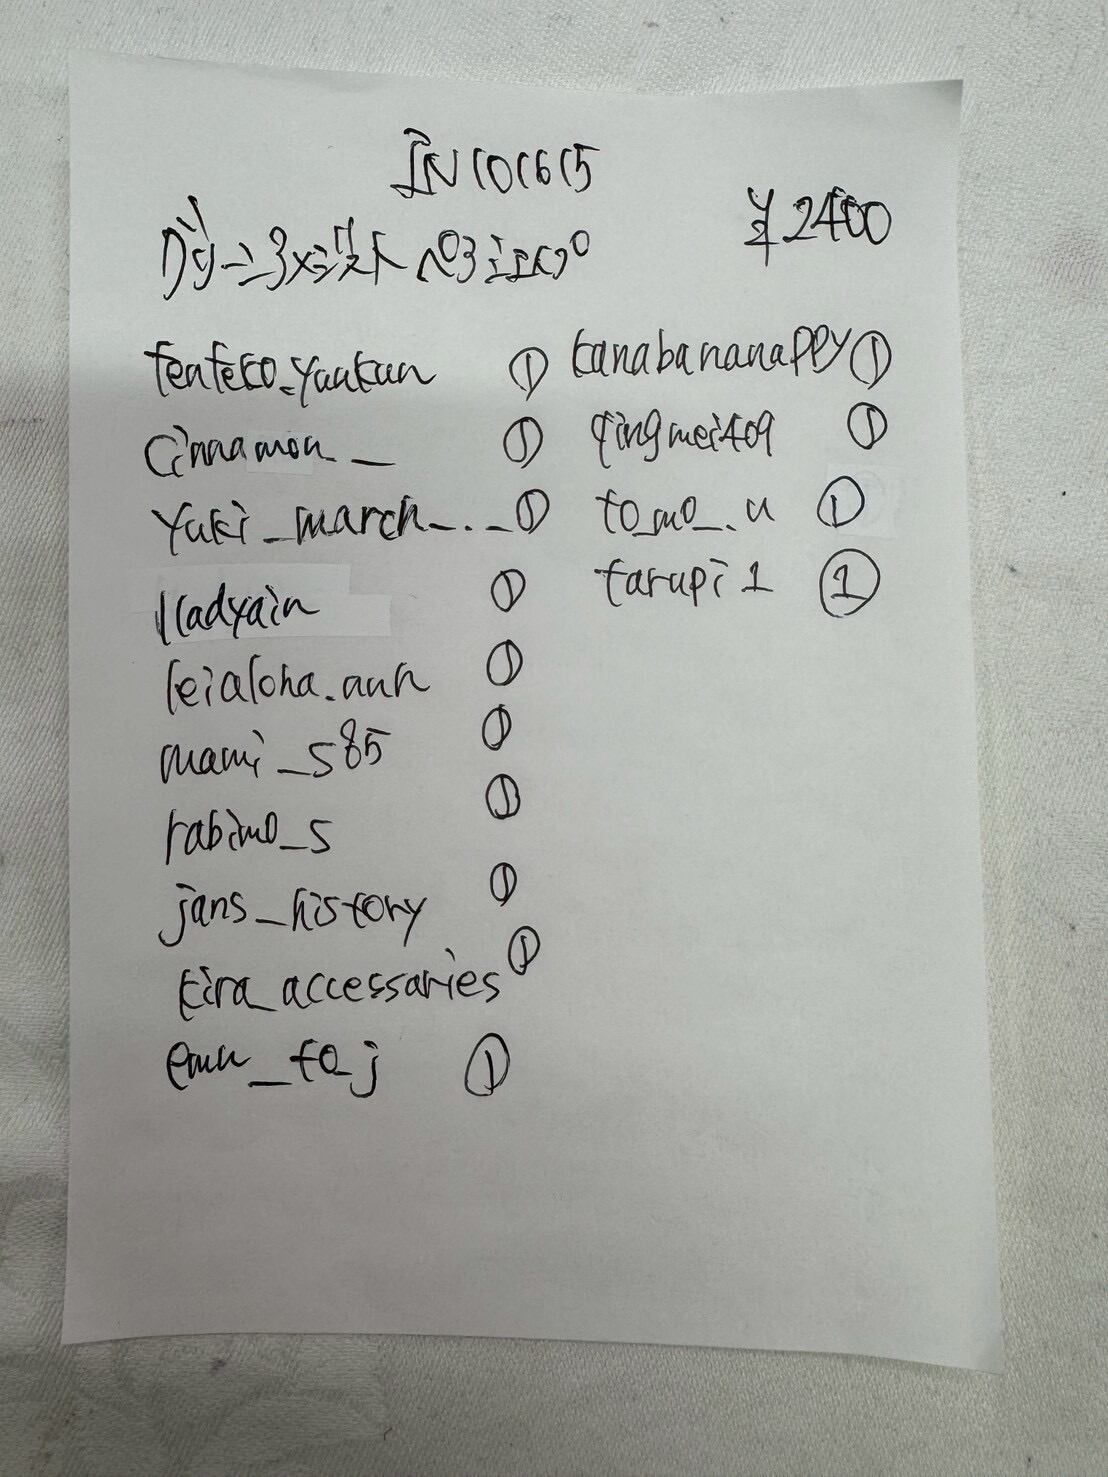 IN101615
¥2400
tenteko_yuukun ①
cinnamon._ ①
yuki_march_._ ①
lladyain ①
leialoha.aun ①
mami_s85 ①
rabimo_s ①
jans_history ①
kira_accessaries ①
emu_to_j ①
kanabananappy ①
qingmei409 ①
to_mo_.u ①
tarupi1 ①